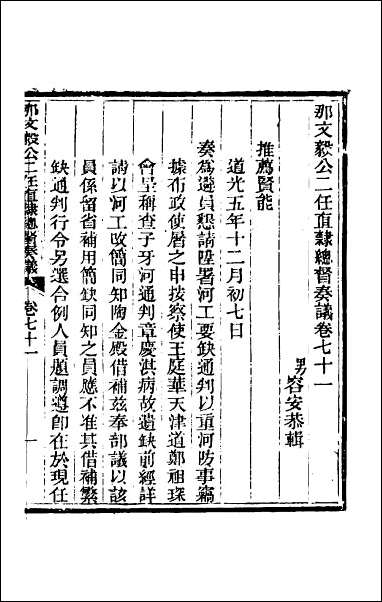 那文毅公二任直隸總督奏議卷七十一
男容安恭輯
推薦賢能
道光五年十二月初七日
奏為遴員懇請陞署河工要缺通判以重河防事竊
據布政使屠之申按察使王庭華天津道鄭祖琛
會呈稱查子牙河通判章慶淇病故遺缺前經詳
請以河工改簡同知陶金殿借補茲奉部議以該
員係留省補用簡缺同知之員應不准其借補繁
缺通判行令另選合例人員題調遵卽在於現任
那文毅公二任直隸總督奏議
卷七十一
一